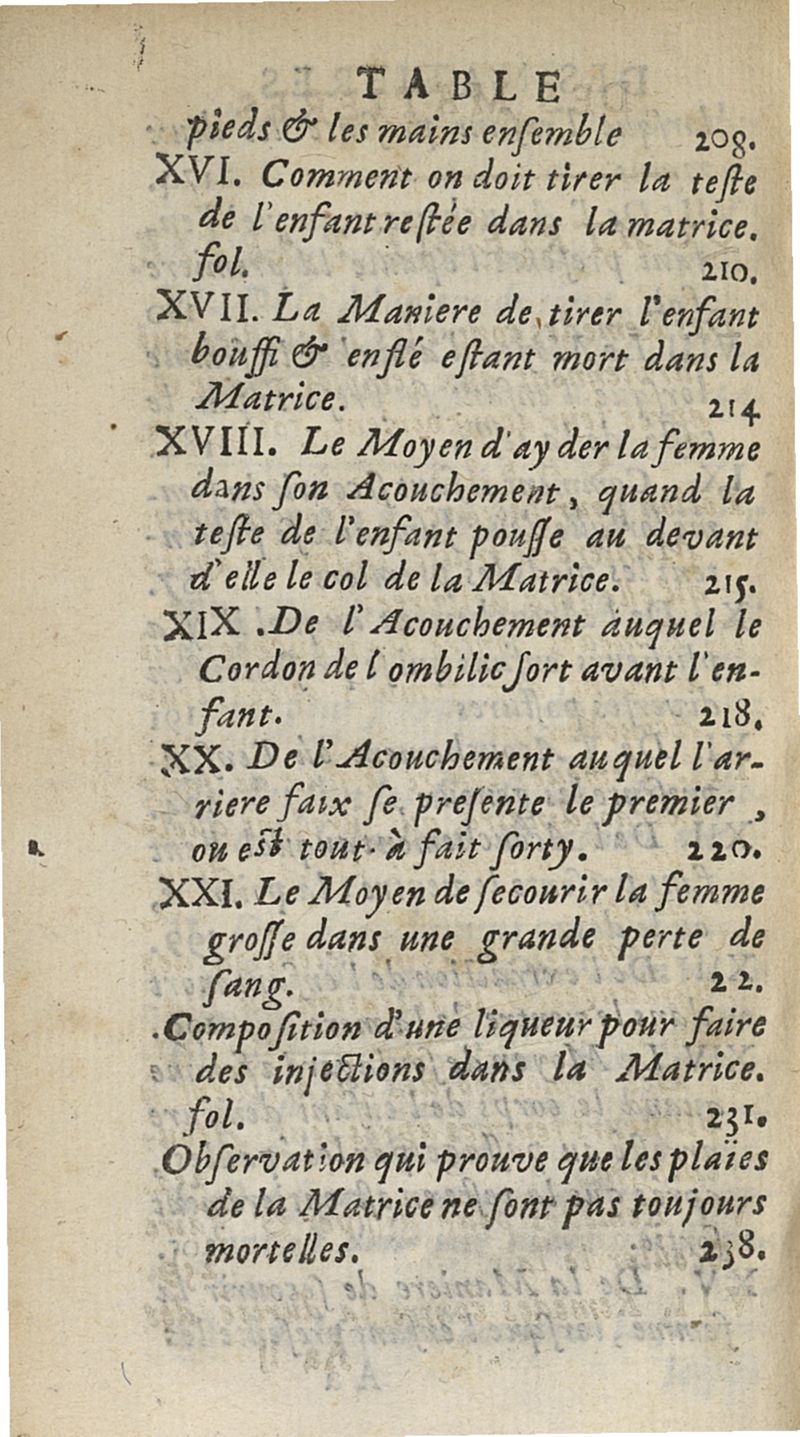 TABLE
pieds & les mains enſemble 208.
XVI. Comment on doit tirer la teſte
de l'enfant reſtée dans la matrice.
fol. 210.
XVII. La Maniere de tirer l'enfant
bouffi & enflé eſtant mort dans la
Matrice. 214
XVIII. Le Moyen d'ayder la femme
dans ſon Acouchement, quand la
teſte de l'enfant pouſſe au devant
d'elle le col de la Matrice. 215.
XIX .De l'Acouchement auquel le
Cordon de l ombilic ſort avant l'en-
fant. 218.
XX. De l'Acouchement auquel l'ar-
riere faix ſe preſente le premier,
ou eſt tout à fait ſorty. 220.
XXI. Le Moyen de ſecourir la femme
groſſe dans une grande perte de
ſang. 22.
.Compoſition d'une liqueur pour faire
des injections dans la Matrice.
fol. 231.
Obſervation qui prouve que les plaies
de la Matrice ne ſont pas toujours
mortelles. 238.